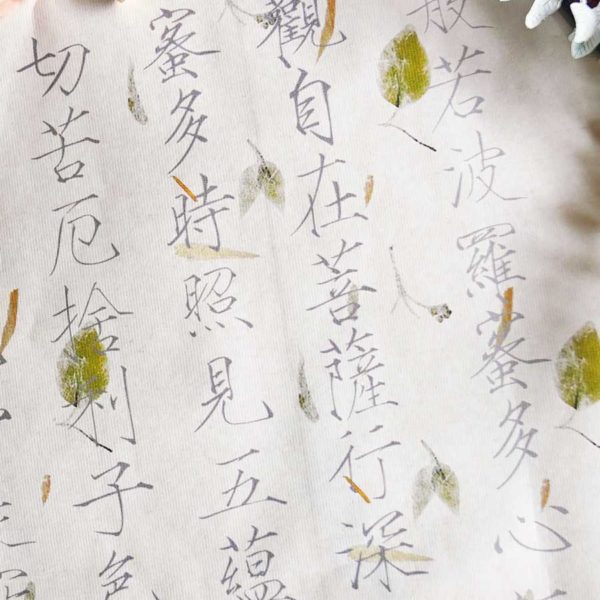 般若波羅蜜多心
觀自在菩薩行深
蜜多時照見五蘊
切苦厄捨利子色